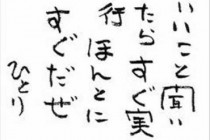 いいこと聞い
たらすぐ実
行ほんとに
すぐだぜ
ひとり